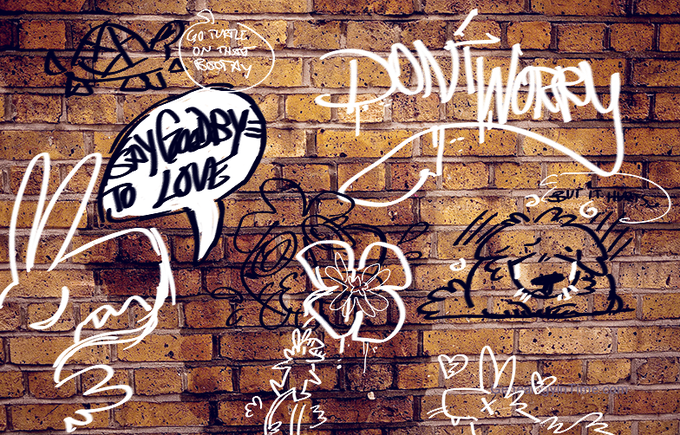 GO TURTLE
ON THAT
DON'T WORRY
SAY GOODBYE
TO LOVE
BUT IT